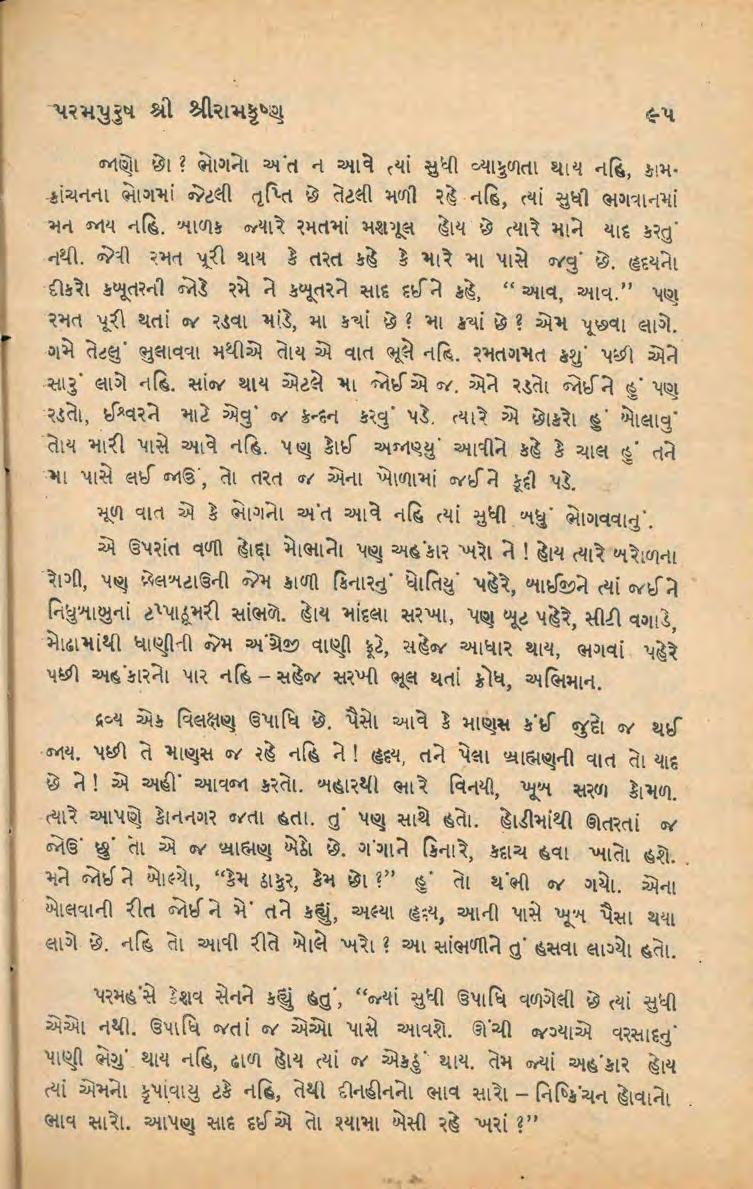 પરમપુરુષ શ્રી શ્રીરામકૃષ્ણ ૯૫
જાણો છો ? ભોગનો અંત ન આવે ત્યાં સુધી વ્યાકુળતા થાય નહિ, કામ-
કાંચનના ભોગમાં જેટલી તૃપ્તિ છે તેટલી મળી રહે નહિ, ત્યાં સુધી ભગવાનમાં
મન જાય નહિ. બાળક જ્યારે રમતમાં મશગૂલ હોય છે ત્યારે માને યાદ કરતું
નથી. જેવી રમત પૂરી થાય કે તરત કહે કે મારે મા પાસે જવું છે. હૃદયનો
દીકરો કબૂતરની જોડે રમે ને કબૂતરને સાદ દઈને કહે, “ આવ, આવ.” પણ
રમત પૂરી થતાં જ રડવા માંડે, મા કયાં છે ? મા કયાં છે ? એમ પૂછવા લાગે.
ગમે તેટલું ભુલાવવા મથીએ તોય એ વાત ભૂલે નહિ. રમતગમત કશું પછી એને
સારું લાગે નહિ. સાંજ થાય એટલે મા જોઈએ જ. એને રડતો જોઈને હું પણ
રડતો, ઈશ્વરને માટે એવું જ ક્રન્દન કરવું પડે. ત્યારે એ છોકરો હું બોલાવું
તોય મારી પાસે આવે નહિ. પણ કોઈ અજાણ્યું આવીને કહે કે ચાલ હું તને
મા પાસે લઈ જાઉં, તો તરત જ એના ખોળામાં જઈને કૂદી પડે.
મૂળ વાત એ કે ભોગનો અંત આવે નહિ ત્યાં સુધી બધું ભોગવવાનું.
એ ઉપરાંત વળી હોદ્દા મોભાનો પણ અહંકાર ખરો ને ! હોય ત્યારે બરોળના
રોગી, પણ છેલબટાઉની જેમ કાળી કિનારનું ધોતિયું પહેરે, બાઈજીને ત્યાં જઈને
નિધુબાબુનાં ટપ્પાઠૂમરી સાંભળે. હોય માંદલા સરખા, પણ બૂટ પહેરે, સીટી વગાડે,
મોઢામાંથી ધાણીની જેમ અંગ્રેજી વાણી ફૂટે, સહેજ આધાર થાય, ભગવાં પહેરે
પછી અહંકારનો પાર નહિ – સહેજ સરખી ભૂલ થતાં ક્રોધ, અભિમાન.
દ્રવ્ય એક વિલક્ષણ ઉપાધિ છે. પૈસો આવે કે માણસ કંઈ જુદો જ થઈ
જાય. પછી તે માણસ જ રહે નહિ ને ! હૃદય, તને પેલા બ્રાહ્મણની વાત તો યાદ
છે ને ! એ અહીં આવજા કરતો. બહારથી ભારે વિનયી, ખૂબ સરળ કોમળ.
ત્યારે આપણે કોનનગર જતા હતા. તું પણ સાથે હતો. હોડીમાંથી ઊતરતાં જ
જોઉં છું તો એ જ બ્રાહ્મણ બેઠો છે. ગંગાને કિનારે, કદાચ હવા ખાતો હશે.
મને જોઈને બોલ્યો, “કેમ ઠાકુર, કેમ છો ?” હું તો થંભી જ ગયો. એના
બોલવાની રીત જોઈને મેં તને કહ્યું, અલ્યા હૃદય, આની પાસે ખૂબ પૈસા થયા
લાગે છે. નહિ તો આવી રીતે બોલે ખરો ? આ સાંભળીને તું હસવા લાગ્યો હતો.
પરમહંસે કેશવ સેનને કહ્યું હતું, “જ્યાં સુધી ઉપાધિ વળગેલી છે ત્યાં સુધી
એઓ નથી. ઉપાધિ જતાં જ એઓ પાસે આવશે. ઊંચી જગ્યાએ વરસાદનું
પાણી ભેગું થાય નહિ, ઢાળ હોય ત્યાં જ એકઠું થાય. તેમ જ્યાં અહંકાર હોય
ત્યાં એમનો કૃપાવાયુ ટકે નહિ, તેથી દીનહીનનો ભાવ સારો – નિષ્કિંચન હોવાનો
ભાવ સારો. આપણ સાદ દઈએ તો શ્યામા બેસી રહે ખરાં ?”